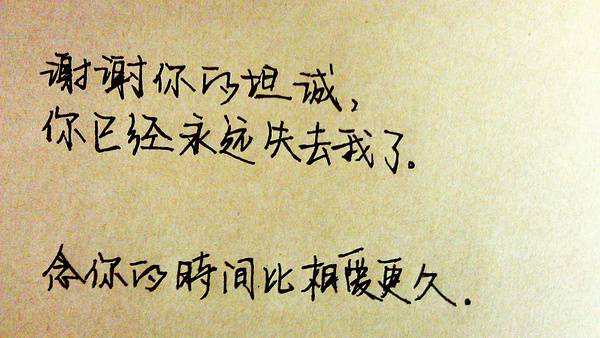 谢谢你的坦诚，
你已经永远失去我了。
念你的時间比相爱更久.